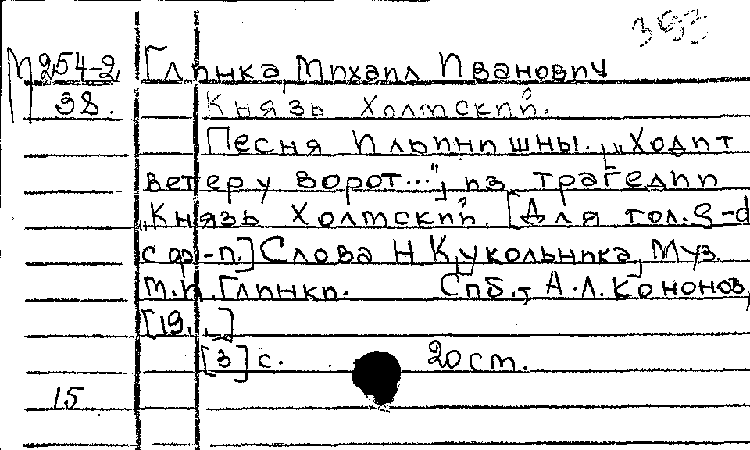 393
М 254-2 Глинка, Михаил Иванович
38. Князь Холмский.
Песня Ильинишны. „Ходит
ветер у ворот...", из трагедии
„Князь Холмский. [Для гол. g-d
с фр-п.] Слова Н Кукольника, Муз.
М.И. Глинки. Спб., А.Л. Кононов,
[19..]
[3] с. 20 см.
15